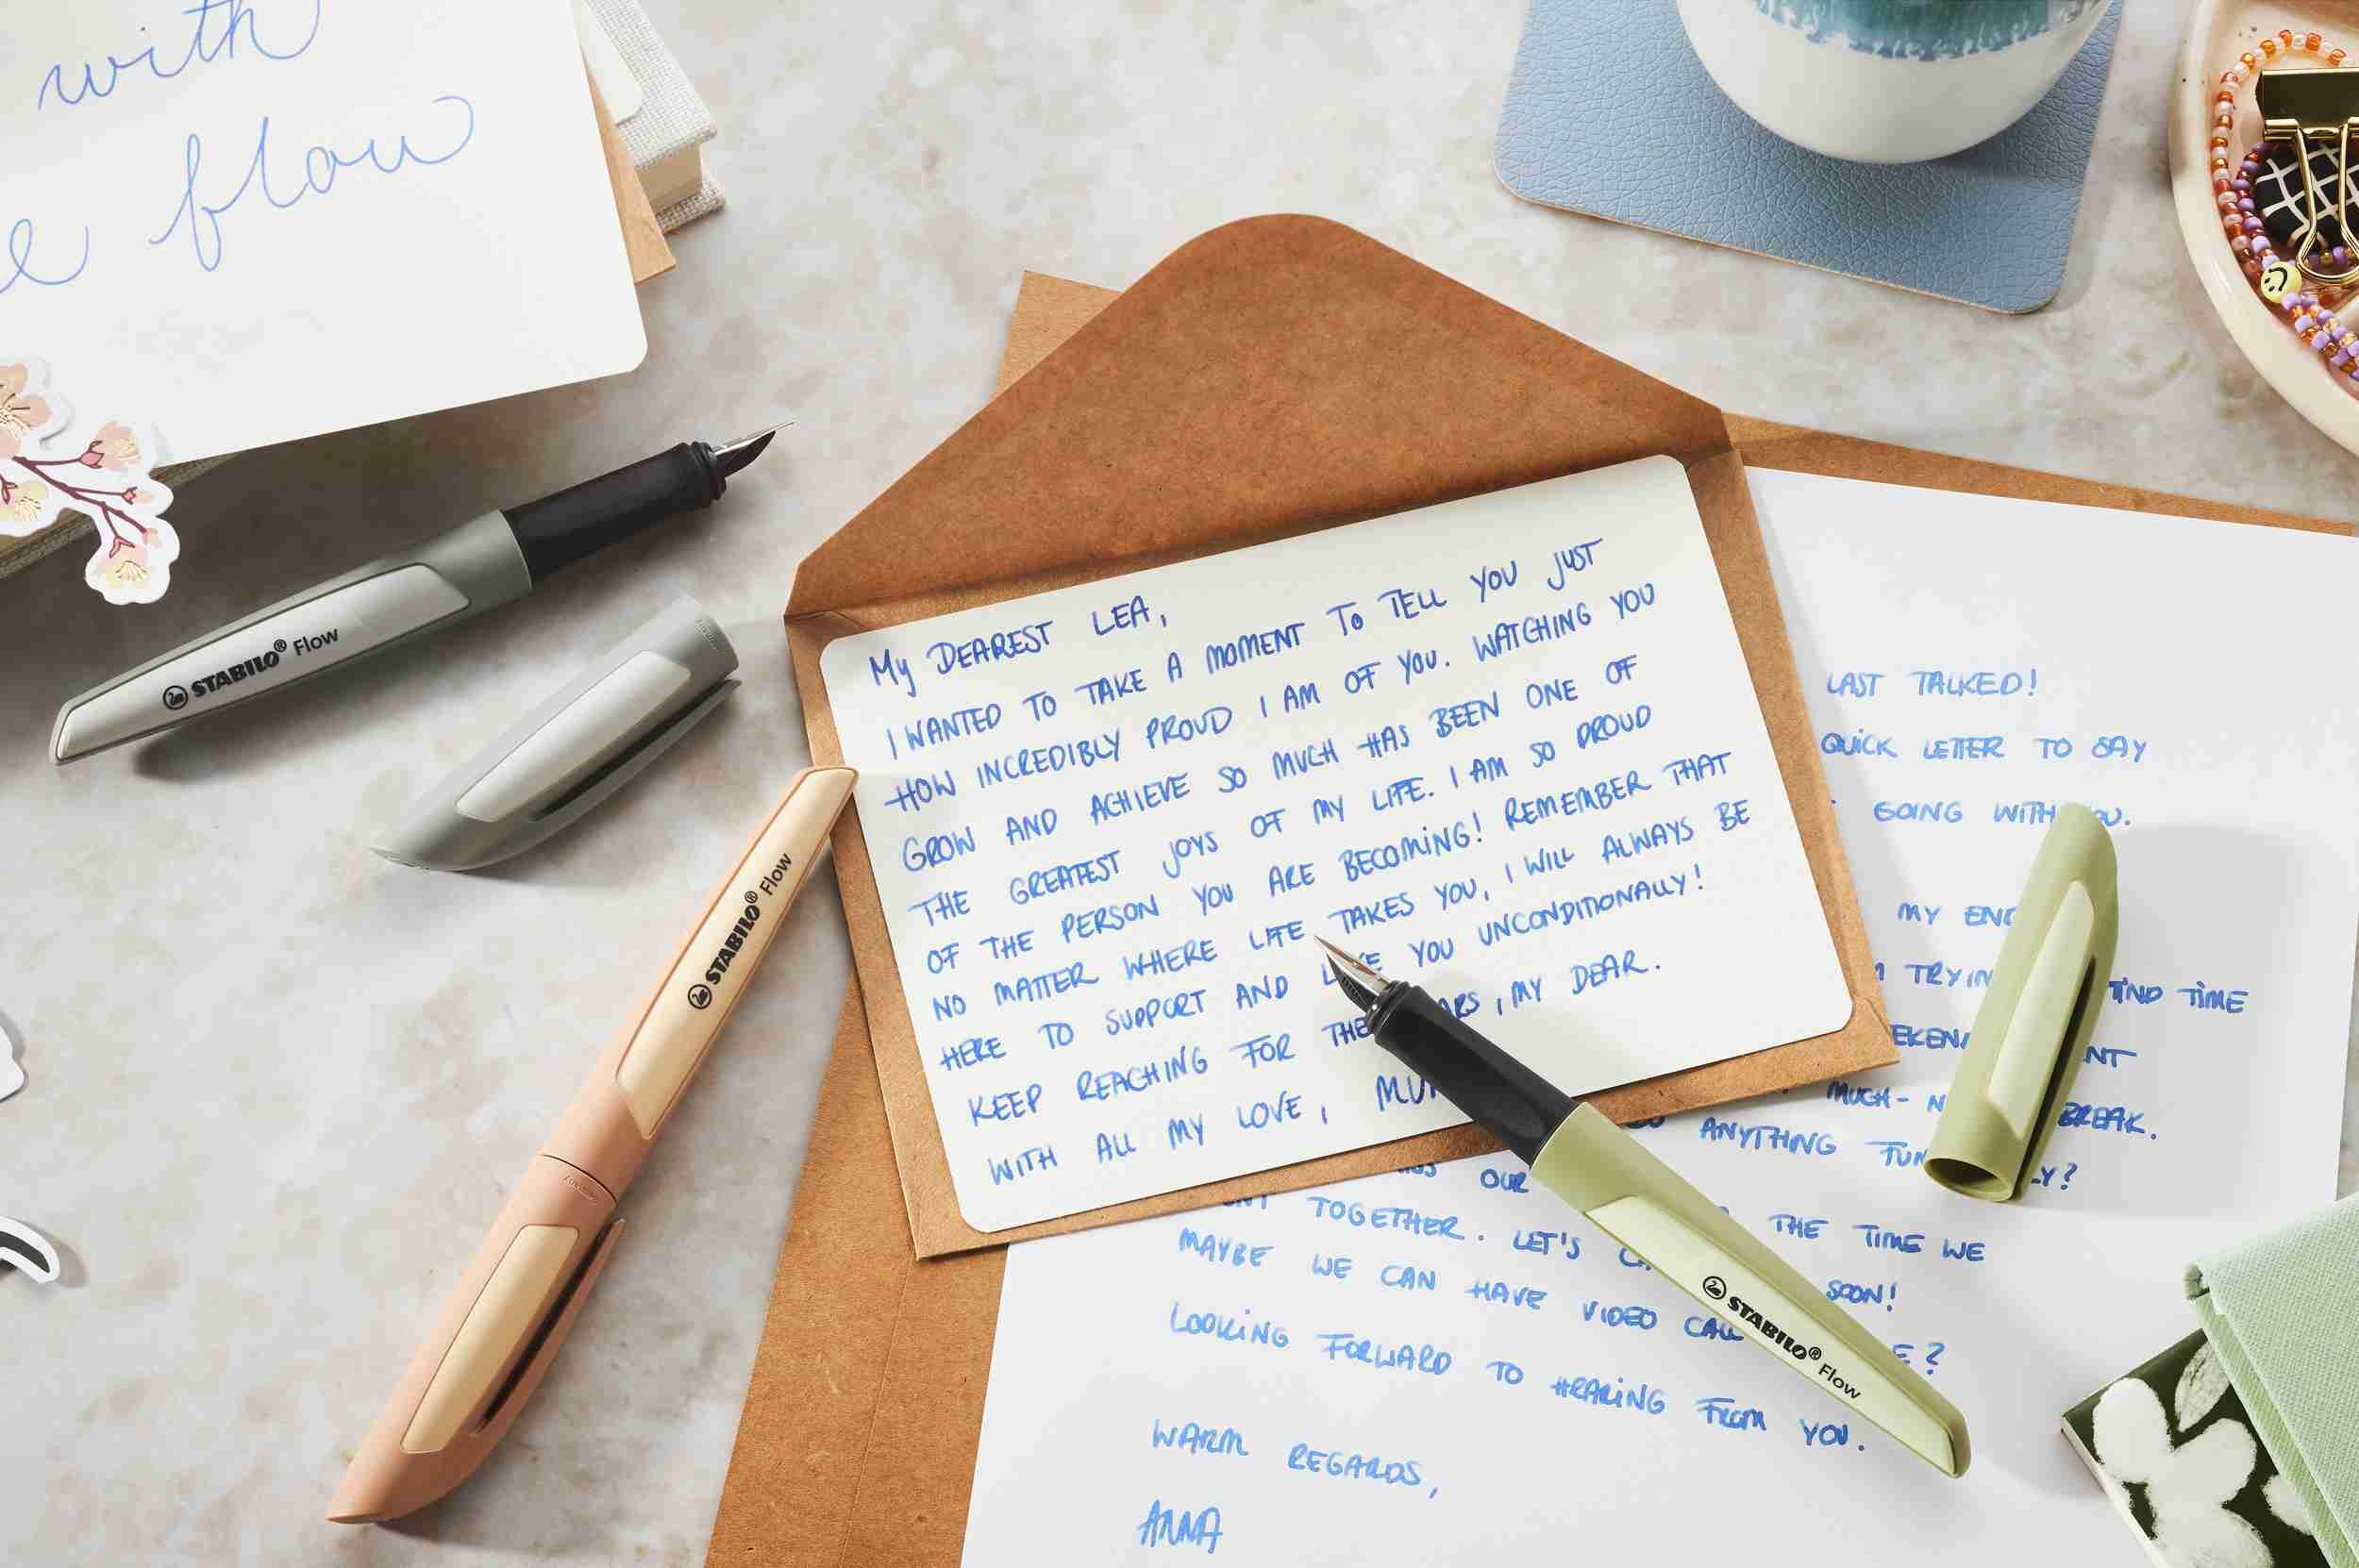 with
e flow
STABILO® Flow
STABILO® Flow
MY DEAREST LEA,
I WANTED TO TAKE A MOMENT TO TELL YOU JUST
HOW INCREDIBLY PROUD I AM OF YOU. WATCHING YOU
GROW AND ACHIEVE SO MUCH HAS BEEN ONE OF
THE GREATEST JOYS OF MY LIFE. I AM SO PROUD
OF THE PERSON YOU ARE BECOMING! REMEMBER THAT
NO MATTER WHERE LIFE TAKES YOU, I WILL ALWAYS BE
HERE TO SUPPORT AND YOU UNCONDITIONALLY!
KEEP REACHING FOR THE ARS, MY DEAR.
WITH ALL MY LOVE,
LAST TALKED!
QUICK LETTER TO SAY
GOING WITH
MY END
TRYIN TIME
NT
MUCH-N BREAK.
ANYTHING FUN LY?
OUR THE TIME WE
TOGETHER. LET'S SOON!
MAYBE WE CAN HAVE VIDEO CALL E?
LOOKING FORWARD TO HEARING FROM YOU.
WARM REGARDS,
ANNA
STABILO® Flow